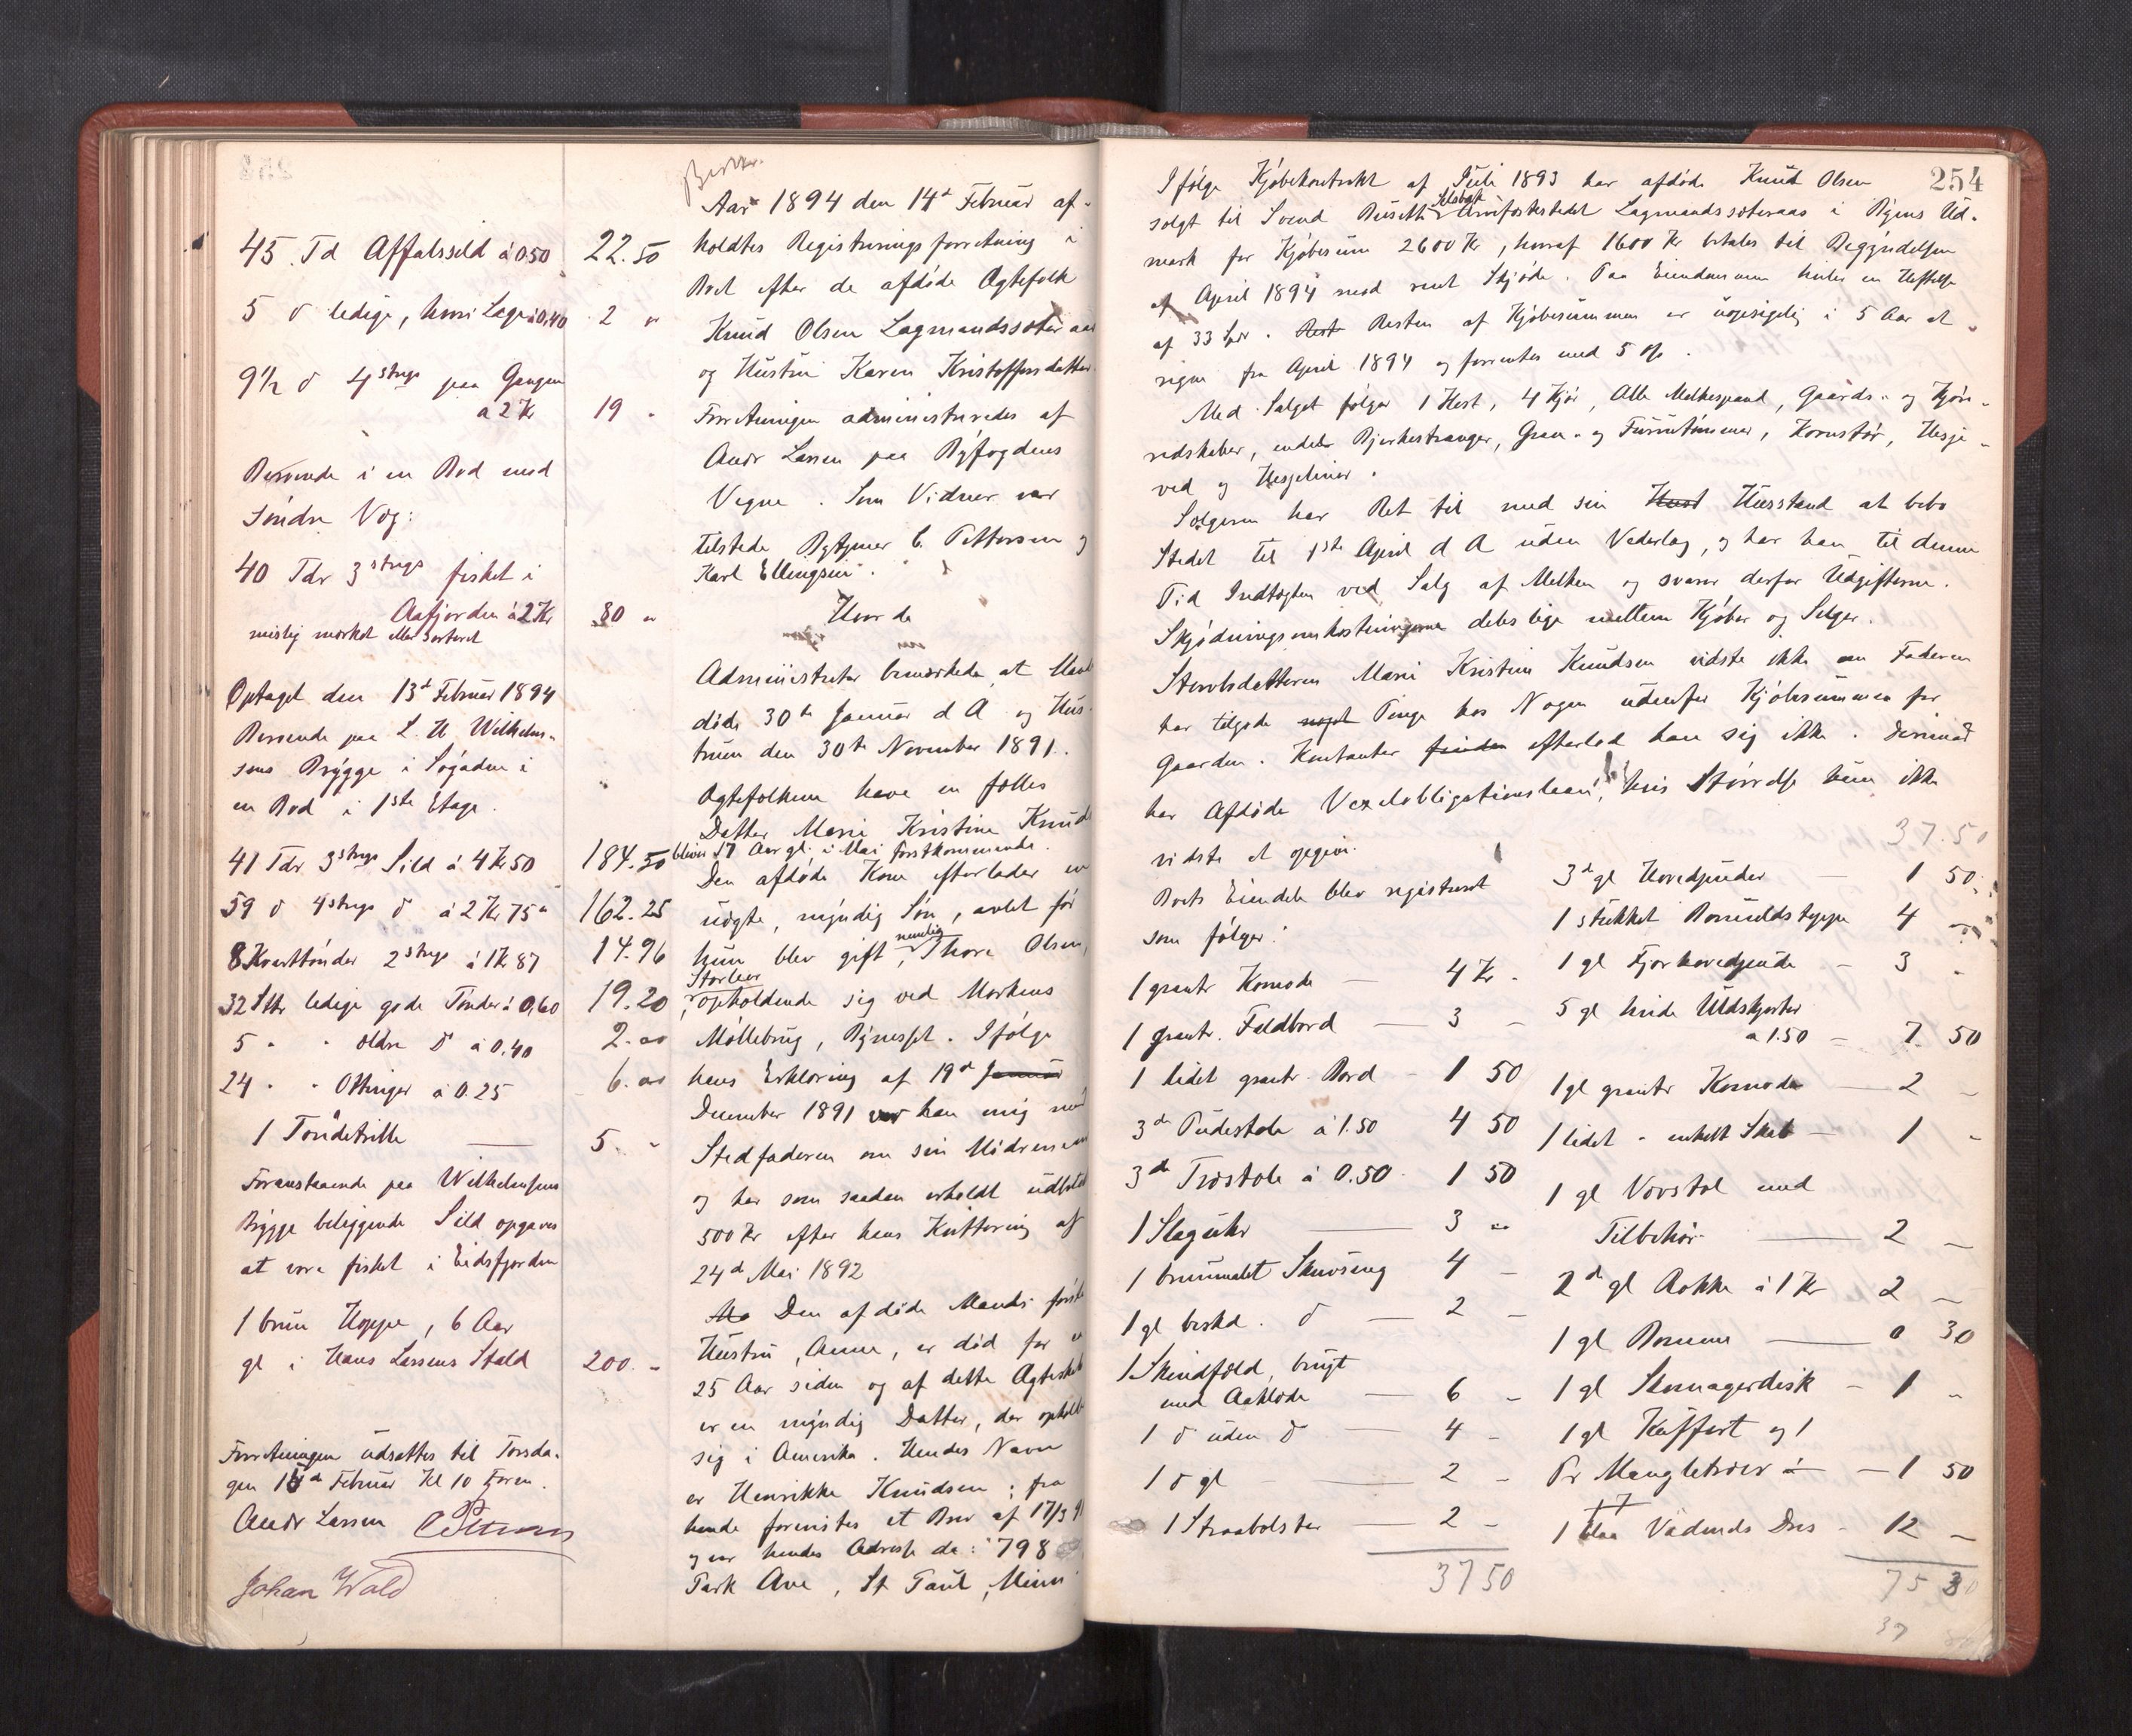 45 Td Affalssild à 0.50 22.50
5 d ledige, hvori Lage à 0,40 2 "
9½ d 4 strgs paa Gangen
a 2 Kr 19 "
Beroende i en Bod med
Søndre Væg:
40 Tdr 3 strgs fisket i
Aafjorden à 2 Kr 80 "
mislig mærket eller sorteret
Optaget den 13d Februar 1894
Beroende paa L. H Wilhelm-
sens Brygge i Søgaden i
en Bod i 1ste Etage.
41 Tdr 3 strgs Sild à 4 Kr 50 184.50
59 d 4 strgs d à 2 Kr 75 162.25
8 Kvarttønder 2 strgs à 1 Kr 87 14.96
32 Stkr ledige gode Tønder à 0,60 19.20
5 " " ældre D à 0.40 2.00
24 " " Ottinger à 0.25 6.00
1 Tøndetrille 5. "
Foranstaaende paa Wilhelmsens
Brygge beliggende Sild opgaves
at være fisket i Eidsfjorden
1 brun Hoppe, 6 Aar
gl i Hans Larsens Stald 200. "
Forretningen udsattes til Torsda-
gen 15d Februar Kl 10 Form.
Andr Larsen
Johan Wold
Aar 1894 den 14d Februar af-
holdtes Registreringsforretning i
Boet efter de afdøde Ægtefolk
Knud Olsen Lagmandssæteraas
og Hustru Karen Kristoffersdatter.
Forretningen administreredes af
Andr Larsen paa Byfogdens
Vegne. Som Vidner var
tilstede C. Pettersen og
Karl Ellingsen.
Hvorda
Administrator bemærkede, at Mand
døde 30te Januar d A og Hus-
truen den 30te November 1891.
Ægtefolkene have en fælles
Datter Marie Kristine Knuds
bliver 17 Aar gl. i Mai førstkommende.
Den afdøde Kone efterlader en
uægte, myndig Søn, avlet før
hun blev gift, nemlig Thore Olsen,
opholdende sig ved Markens
Møllebrug, Bynesset. Ifølge
hans Erklæring af 19d Januar
December 1891 var han enig med
Stedfaderen om sin Mødrenearv
og har som saadan erholdt udbetalt
500 Kr efter hans Kvittering af
24d Mai 1892
Ma Den afdøde Mands første
Hustru, Anne, er død for
25 Aar siden og af dette Ægteskab
er en myndig Datter, der opholder
sig i Amerika. Hendes Navn
er Henrikke Knudsen; fra
hende forevistes et Brev af 17/3 91
og var hendes Adresse da: 798
Park Ave, St Paul, Minn
254
Ifølge Kjøbekontrakt af Juli 1893 har afdøde Knud Olsen
solgt til Svend Arvefæstestedet Lagmandssæteraas i Byens Ud-
mark for Kjøbesum 2600 Kr, hvoraf 1600 Kr betales til Begyndelsen
af April 1894 mod rent Skjøde. Paa Eiendommen hviler en Heftelse
af 33 Spd. Rest Resten af Kjøbesummen er uopsigelig i 5 Aar at
regne fra April 1894 og forrentes med 5 %.
Med Salget følger 1 Hest, 4 Kjør, Alle Melkespand, Gaards- og Kjøre-
redskaber, endel Bjerkestranger, Gran- og Furutømmer, Kornstør, Hesje-
ved og Hesjeliner.
Sælgeren har Ret til med sin Hust Husstand at bebo
Stedet til 1ste April d A uden Vederlag, og har han til denne
Tid Indtægten ved Salg af Melken og svarer derfor Udgifterne.
Skjødningsomkostningerne deles lige mellem Kjøber og Selger.
Stervbsdatteren Marie Kristine Knudsen vidste ikke om Faderen
har tilgode noget Penge hos Nogen udenfor Kjøbesummen for
Gaarden. Kontanter findes efterlod han sig ikke. Derimod
har Afdøde Vexelobligationslaan, hvis Størrelse hun ikke
vidste at opgive.
Boets Eiendele blev registreret
som følger:
1 grantr Komode 4 Kr "
1 grantr. Foldbord 3 "
1 lidet grantr Bord 1 50
3 d Pudestole à 1.50 4 50
3 d Træstole à 0.50 1 50
1 Slaguhr 3 "
1 brunmalet Skuvseng 4 "
1 gl beskd. d 2 "
1 Skindfæld, brugt
med Aaklæde 6 "
1 d uden d 4 "
1 d gl 2 "
1 Straabolster 2 "
37 50
37.50
3 d gl Hovedpuder 1 50
1 stukket Bomuldstæppe 4 "
1 gl Fjærhovedpude 3 "
5 gl hvide Uldskjorter
a 1.50 7 50
1 gl grantr Komode 2 "
1 lidet " enkelt Skab 1 "
1 gl Vævstol med
Tilbehør 2 "
2 d gl Rokke à 1 Kr 2 "
1 gl Bomme 0 30
1 gl Skomagerdisk 1 "
1 gl Kuffert og 1
Pr Mangletræer à 1 50
1 blaa Vadmels Dres 12 "
75 30
37